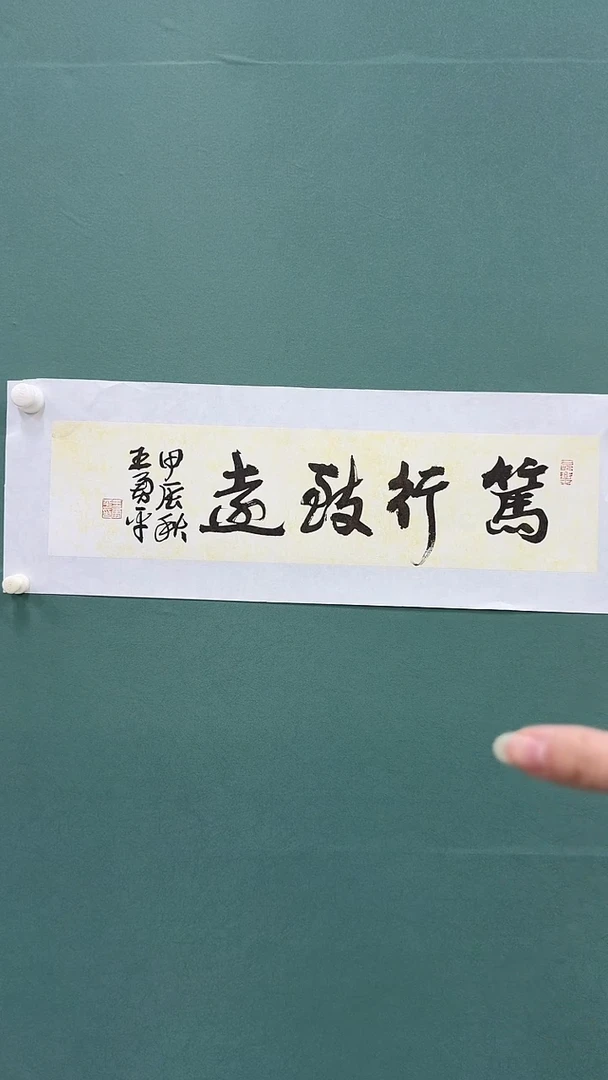 篤行致遠
甲辰秋
王勇平